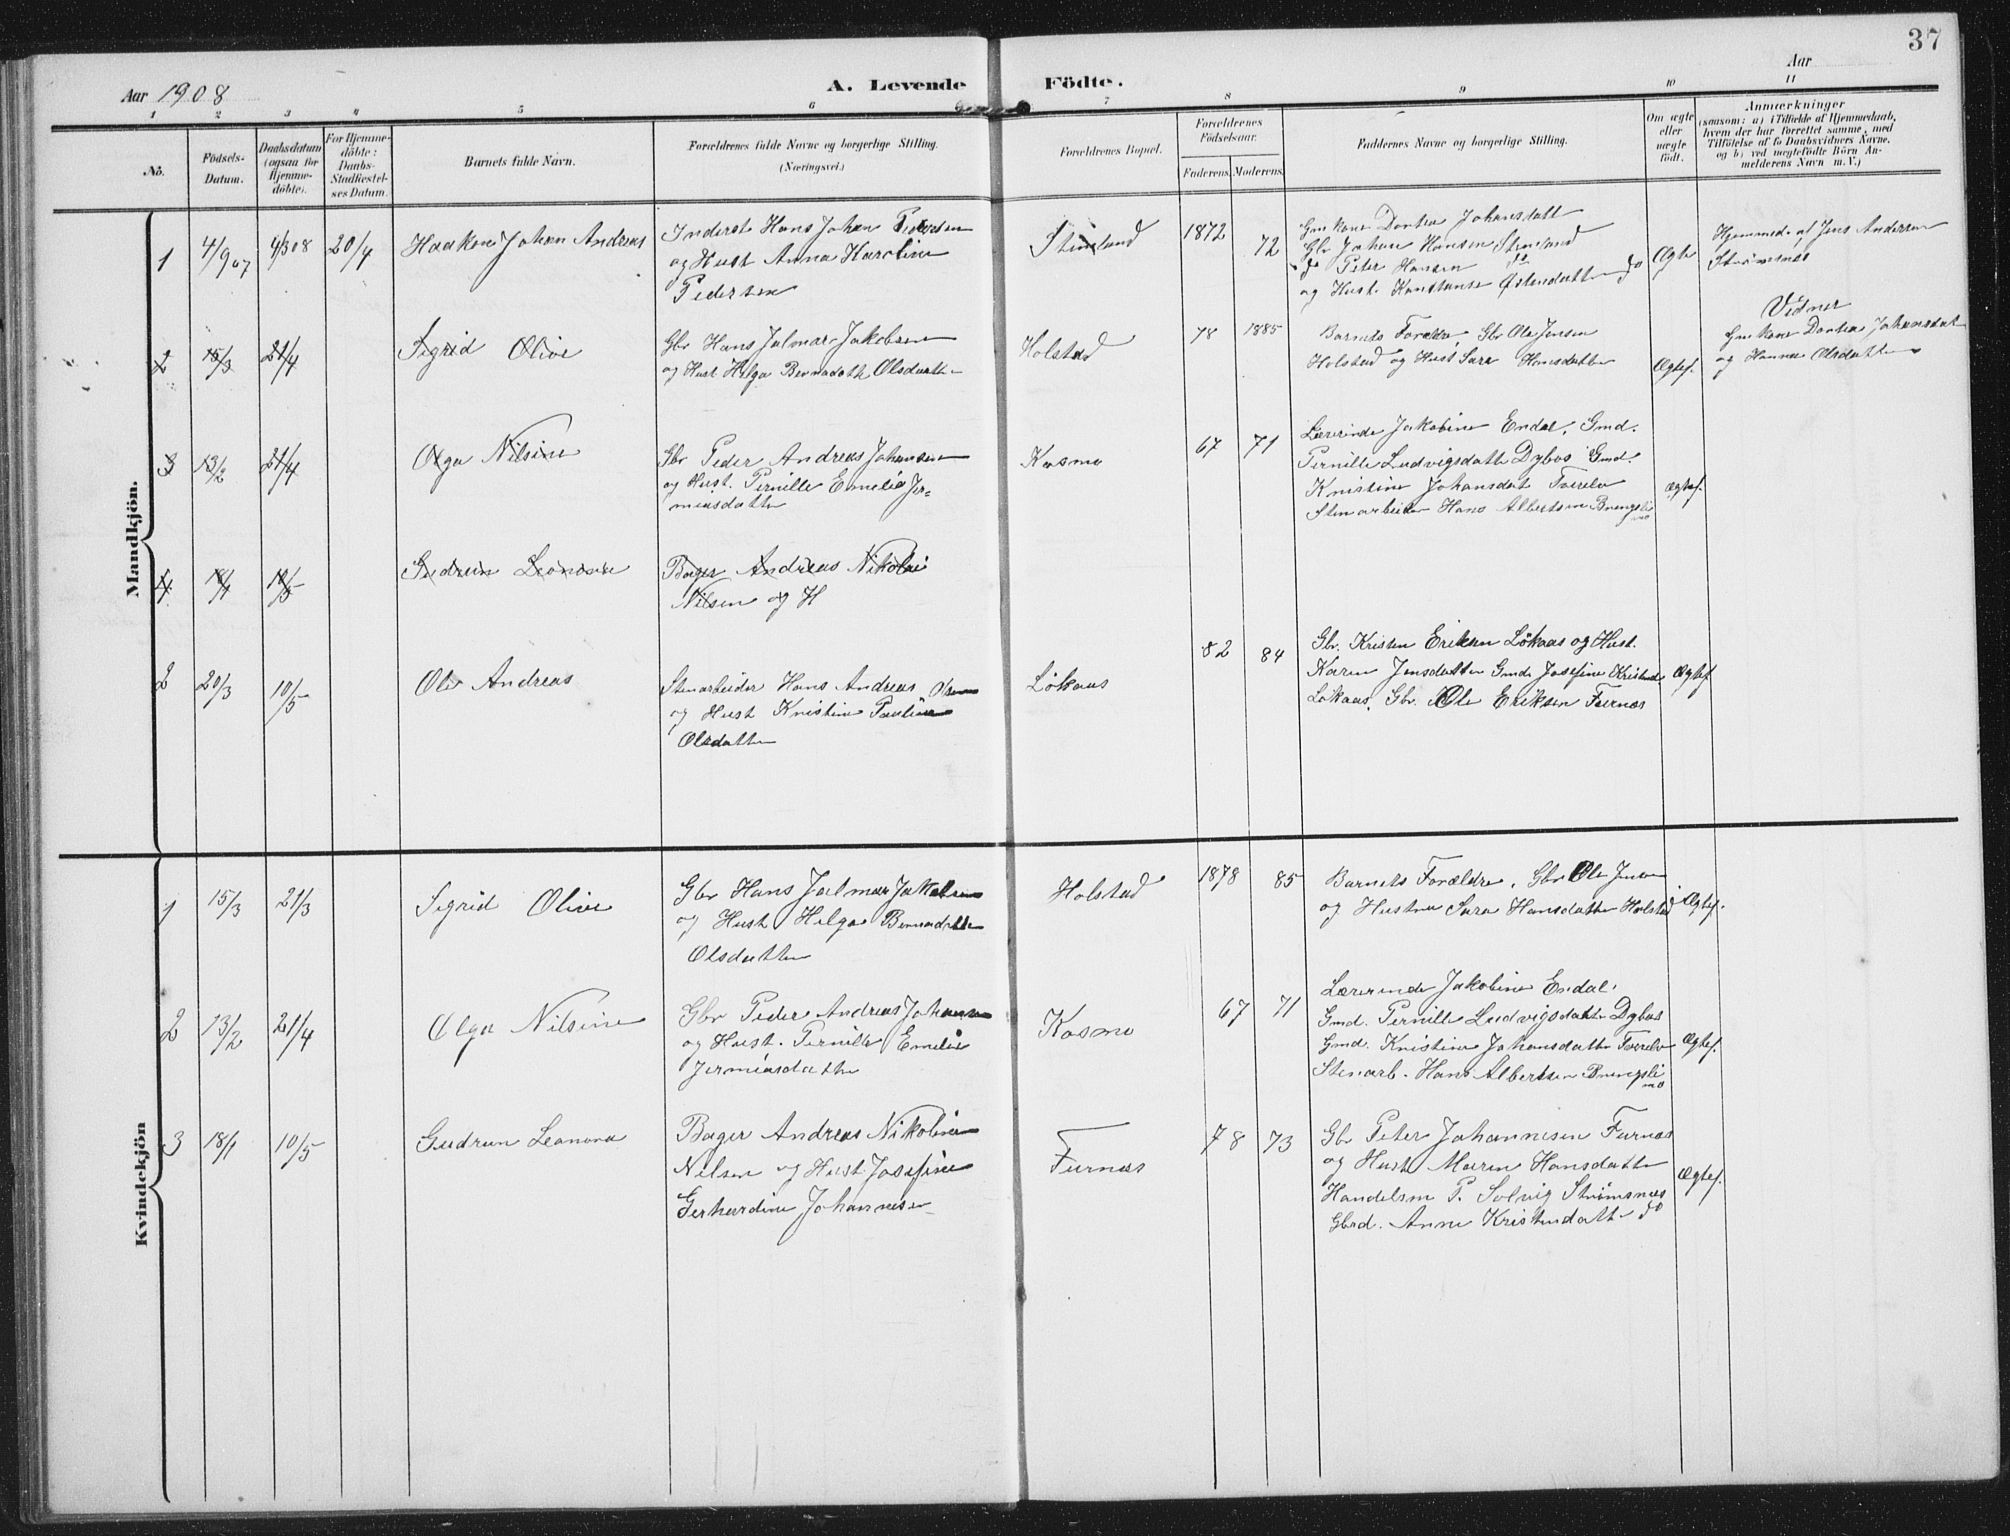 37
Aar 1908
A. Levende Födte.
Aar
1 2 3 4 5 6 7 8 9 10 11
No.
Födsels-
Datum.
Daabsdatum
(ogsaa for
Hjemme-
döbte).
For Hjemme-
döbte:
Daabs-
Stadfæstel-
ses Datum.
Barnets fulde Navn.
Forældrenes fulde Navne og borgerlige Stilling.
(Næringsvei.)
Forældrenes Bopæl.
Forældrenes
Födselsaar.
Faderens Moderens
Faddernes Navne og borgerlige Stilling.
Om ægte
eller
uægte
født.
Anmærkninger
(saasom: a) i Tilfælde af Hjemmedaab,
hvem der har forrettet samme, med
Tilföielse af to Daabsvidners Navne,
og b) ved uægtefödte Börn An-
melderens Navn m. V.)
Mandkjön.
1 4/9 07 4/3 08 20/4
Haakon Johan Andreas
Inderst Hans Johan Pedersen
og Hust Anna Karoline
Pedersen
1872 72
Gmkone Dortea Johansdatt
Gbr Johan Hansen Stenland
do Peter Hansen do
og Hust. Konstanse Østensdatter do
Ægte
Hjemmed. af Jens Andersen
Strømsnes
Vidner
Gmkone Dortea Johansdat
og Hanna Olsdatter
2 15/3 21/4
Sigrid Olive
Gbr Hans Jalmar Jakobsen
og Hust Helga Bernadotte Olsdatter
Holstad
78 1885
Barnets Forældre, Gbr Ole Jensen
Holstad og Hust Sara Hansdatter
Ægtef.
3 13/2 21/4
Olga Nilsine
Gbr Peder Andreas Johansen
og Hust. Pernille Emelie Jer-
miasdatter
Kosmo
67 71
Lærerinde Jakobine Endal, Gmd.
Pernille Ludvigsdatter Dybos Gmd.
Kristine Johansdat Tverelv
Stenarbeider Hans Albertsen Brengsli
mo
Ægtef.
4 18/1 10/5
Gudrun Leonora
Bager Andreas Nikolai
Nilsen og H
2 20/3 10/5
Ole Andreas
Stenarbeider Hans Andreas Olsen
og Hust Kristine Pauline
Olsdatter
Løkaas
82 84
Gbr. Kristen Eriksen Løkaas og Hust.
Karen Jensdatter Gmd. Josefine Kristensd
Løkaas, Gbr. Ole Eriksen Furnes
Ægtef
Kvindekjön
1 15/3 21/3
Sigrid Olive
Gbr Hans Jalmar Jakobsen
og Hust Helga Bernadotte
Olsdatter
Holstad
1878 85
Barnets Forældre, Gbr Ole Jensen
og Hustru Sara Hansdatter Holstad
Ægtef.
2 13/2 21/4
Olga Nilsine
Gbr Peder Andreas Johansen
og Hust. Pernille Emelie
Jermiasdatter
Kosmo
67 71
Lærerinde Jakobine Endal,
Gmd. Pernille Ludvigsdatter Dybos
Gmd. Kristine Johansdatter Tverelv
Stenarb. Hans Albertsen Brengsli
mo
Ægtef.
3 18/1 10/5
Gudrun Leonora
Bager Andreas Nikolai
Nilsen og Hust Josefine
Gerhardine Johannesen
Furnes
78 73
Gbr Peter Johannesen Furnes
og Hust Maren Hansdatter
Handelsm P. Solvig Strømsnes
Gbrd. Anne Kristensdatter do
Ægtef.